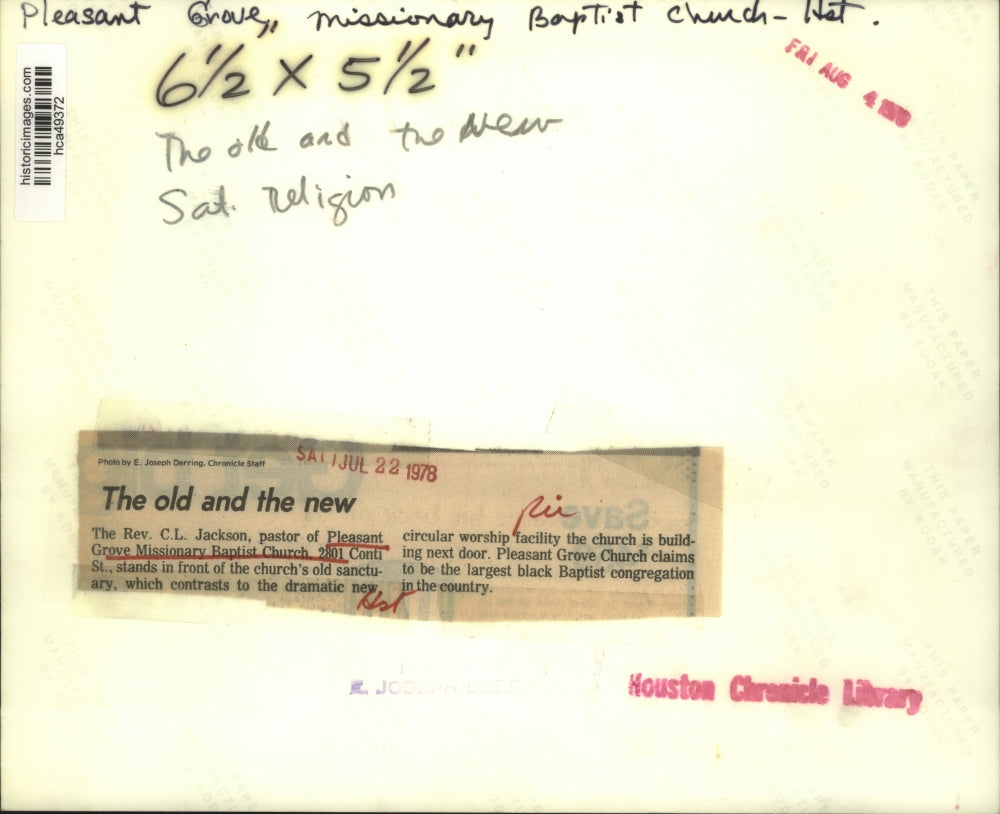 Pleasant Grove, missionary Baptist Church - Hst.
6 1/2 X 5 1/2"
FRI AUG 4 1978
historicimages.com
hca49372
The old and the new
Sat. Religion
Photo by E. Joseph Derring, Chronicle Staff
SAT JUL 22 1978
The old and the new
pic
The Rev. C.L. Jackson, pastor of Pleasant
Grove Missionary Baptist Church, 2801 Conti
St., stands in front of the church's old sanctu-
ary, which contrasts to the dramatic new
Hst
circular worship facility the church is build-
ing next door. Pleasant Grove Church claims
to be the largest black Baptist congregation
in the country.
E. JOSEPH DEER
Houston Chronicle Library
THIS PAPER
MANUFACTURED
BY KODAK